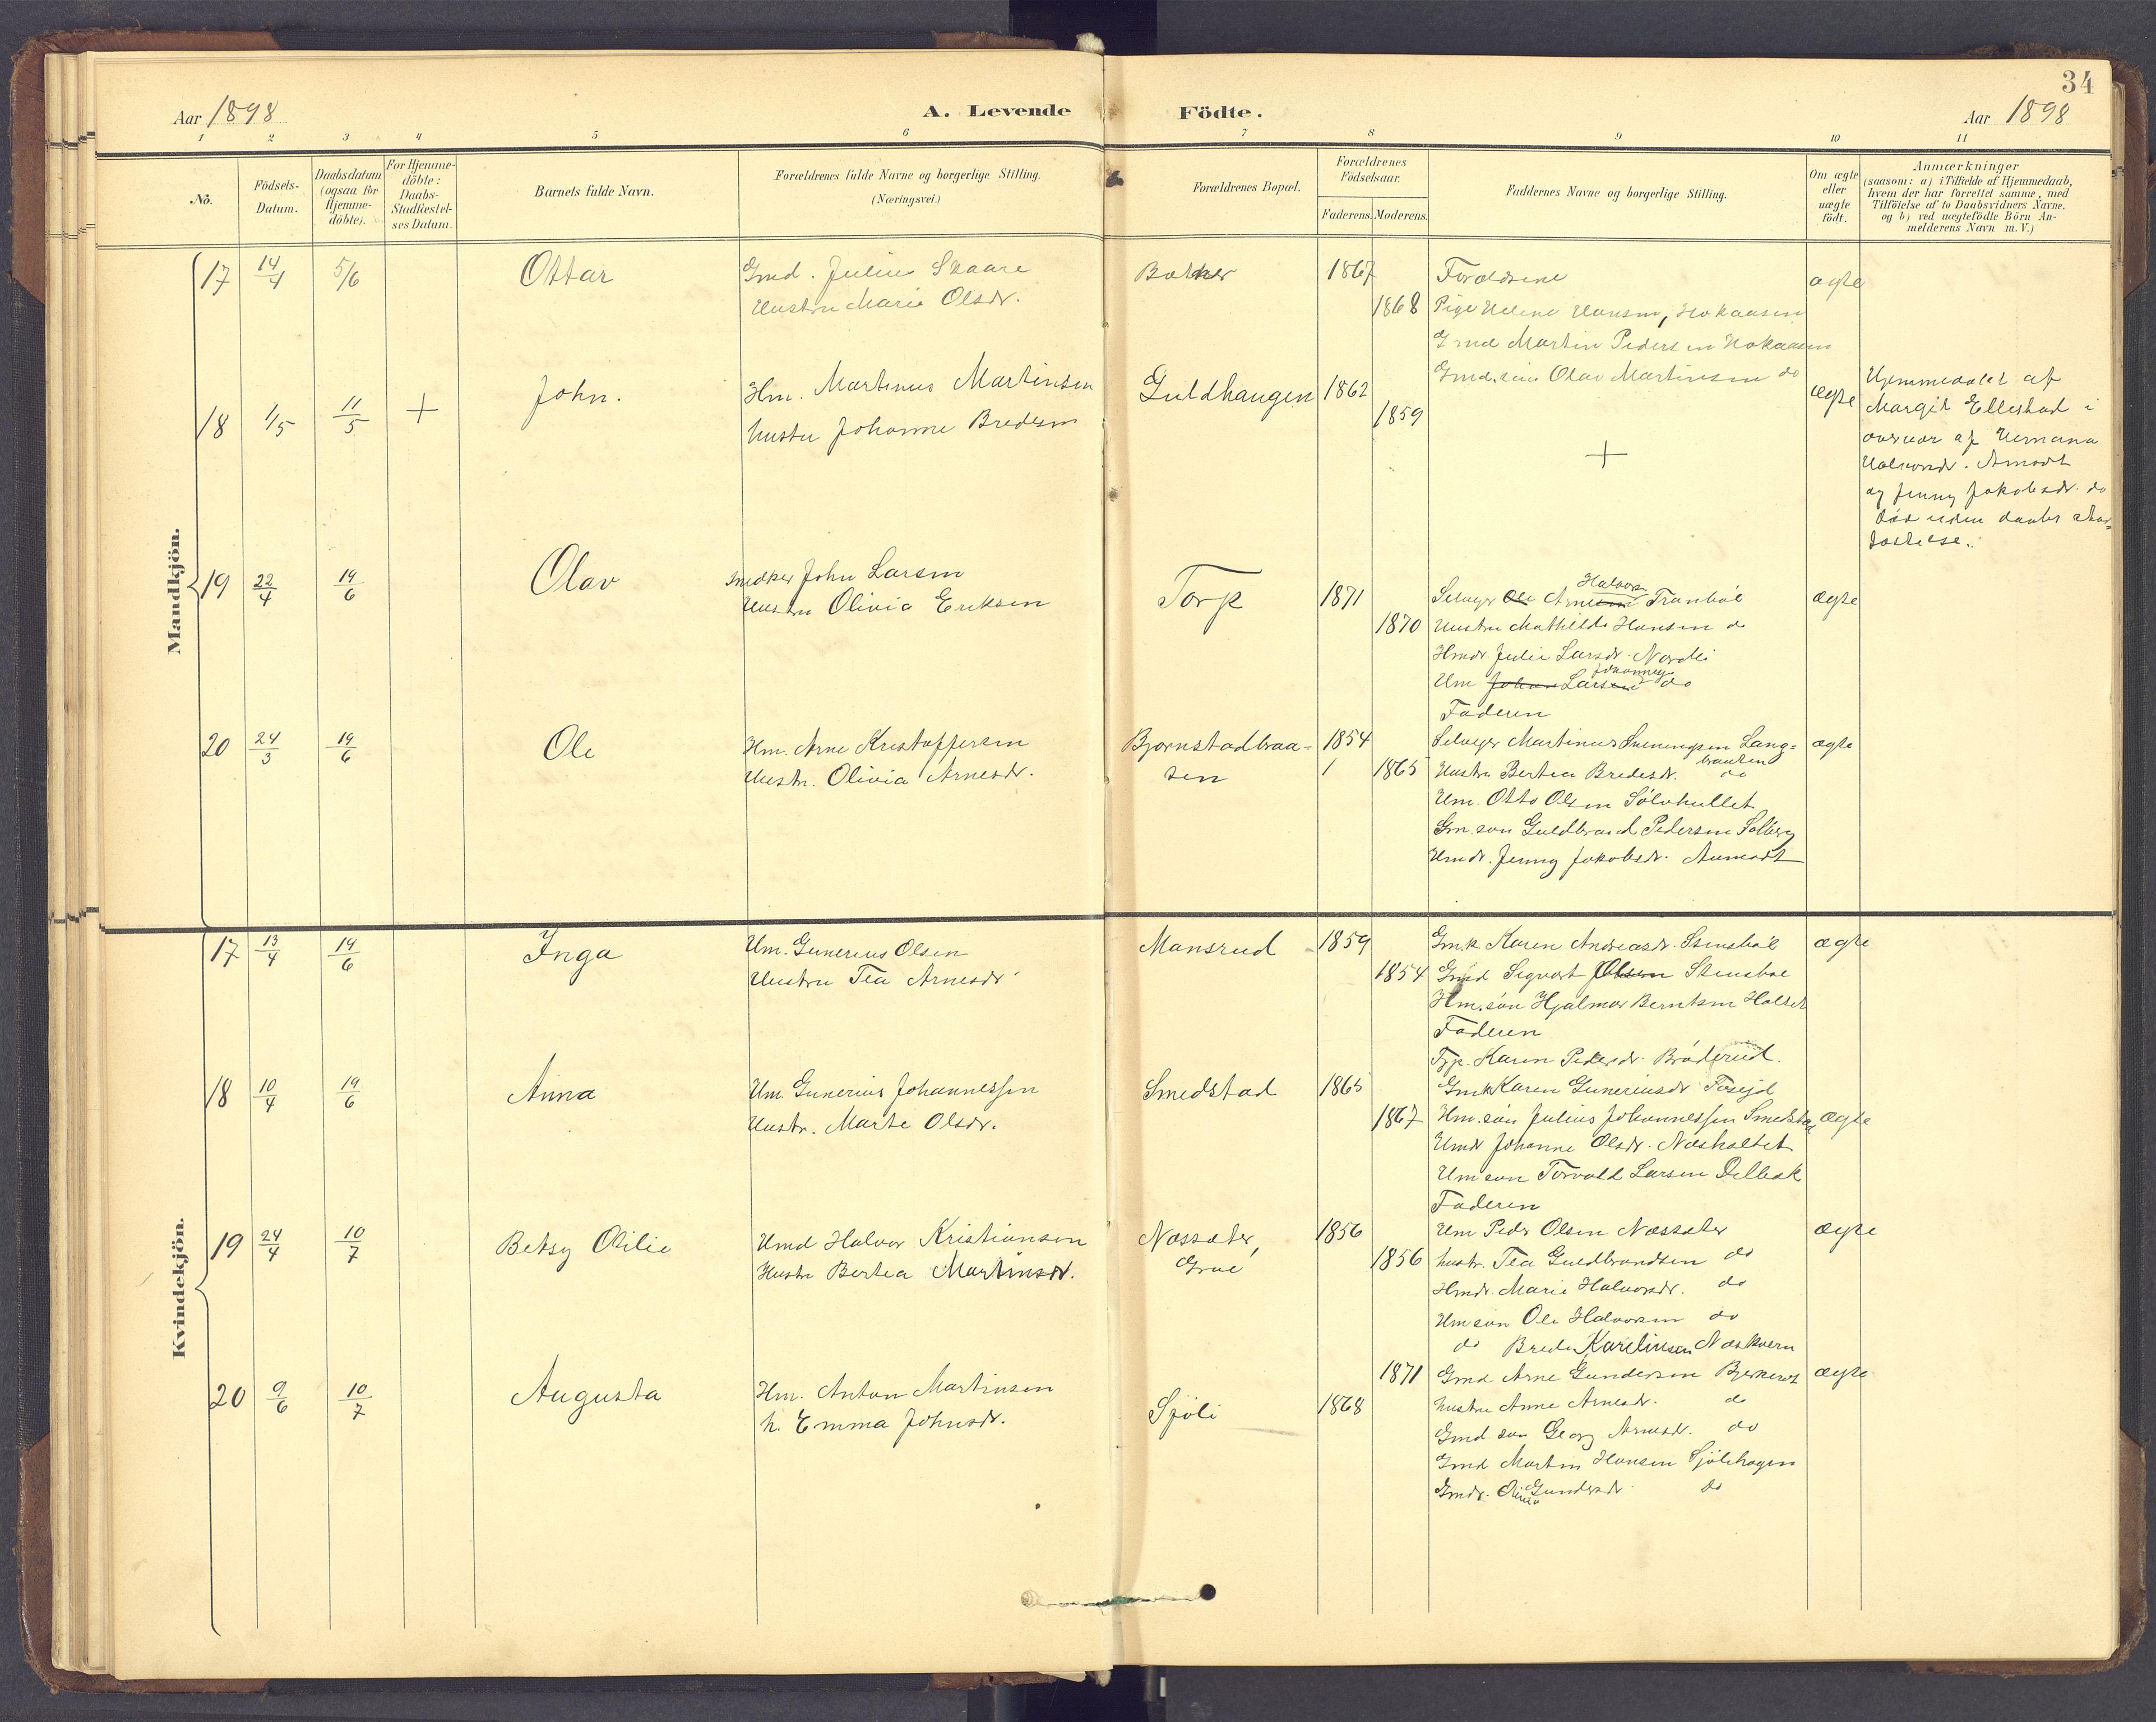 34
Aar 1898
A. Levende Födte.
Aar 1898
1 2 3 4 5 6 7 8 9 10 11
No.
Födsels-
Datum.
Daabsdatum
(ogsaa for
Hjemme-
döbte).
For Hjemme-
döbte:
Daabs-
Stadfæstel-
ses Datum.
Barnets fulde Navn.
Forældrenes fulde Navne og borgerlige Stilling.
(Næringsvei.)
Forældrenes Bopæl.
Forældrenes
Födselsaar.
Faderens. Moderens.
Faddernes Navne og borgerlige Stilling.
Om ægte
eller
uægte
födt.
Anmærkninger
(saasom: a) i Tilfælde af Hjemmedaab,
hvem der har forrettet samme, med
Tilföielse af to Daabsvidners Navne.
og b) ved uægtefödte Börn An-
melderens Navn m. V.)
Mandkjön.
17 14/4 5/6 Ottar
Gmd. Julius Skaare
Hustru Marie Olsdr.
1867
1868
Forældrene
Pige Helene Hansen, Hokaasen
Gmd Martin Pedersen Hokaasen
Gmd. søn Olav Martinsen do
ægte
18 1/5 11/5 + John.
Hm. Martinus Martinsen
hustru Johanne Bredesen
Guldhaugen 1862
1859
+
ægte
Hjemmedøbt af
Margit Ellestad i
overvær af
Halvorsdr.
og Jenny Jakobsdr. do
Død uden daabs stad=
fæstelse.
19 22/4 19/6 Olav
Snedker John Larsen
Hustru Olivia Eriksen
Torp 1871
1870
Selveger Ole Arnesen Halvorsen Tranbøl
Hustru Mathilde Hansen do
Hmdr. Julie Larsdr. Nordli
Hm Johan Larsen Johannes do
Faderen
ægte
20 24/3 19/6 Ole
Hm. Arne Kristoffersen
Hustr. Olivia Arnesdr.
Bjørnstadbraa=
ten
1854
1 1865
Selveger Martinus Svenningsen Lang=
braaten
Hustru Bertea Bredesdr. do
Hm. Otto Olsen Sølvhullet
Gm. søn Guldbrand Pedersen Solberg
Hmdr. Jenny Jakobsdr.
ægte
Kvindekjön.
17 13/4 19/6 Inga
Hm. Gunerius Olsen
Hustru Tea Arnesdr.
Mansrud 1859
1854
Gmk. Karen Andreasdr. Stensbøl
Gmd Sigvart Olsen Stensbøl
Hm. søn Hjalmar Berntsen Holset
Faderen
Tjp. Karen Pedersdr. Brøderud.
ægte
18 10/4 19/6 Anna
Hm Gunerius Johannessen
Hustr. Marte Olsdr.
Smedstad 1865
1867
Gmk Karen Gunerinsdr
Hm. søn Julius Johannessen Smedstad
Hmdr Johanne Olsdr. Næsholtet
Hm søn Torvald Larsen
Faderen
ægte
19 24/4 10/7 Betsy Otilie
Hmd Halvor Kristiansen
Hustru Bertea Martinsdr.
Næssæter,
Grue
1856
1856
Hm Peder Olsen Næssæter
hustr. Tea Guldbrandsen do
Hmdr. Marie Halvorsdr. do
Hm søn Ole Halvorsen do
do Brede Karelinsen Næskvern
ægte
20 9/6 10/7 Augusta
Hm. Anton Martinsen
h. Emma Johnsdr.
Sjøli 1868
1871
Gmd Arne Gundersen
hustru Anne Arnesdr. do
Gmd søn Georg Arnesdr. do
Gmd Martin Hansen Sjølihagen
Gmdr. Olivia Gundersdr. do
ægte